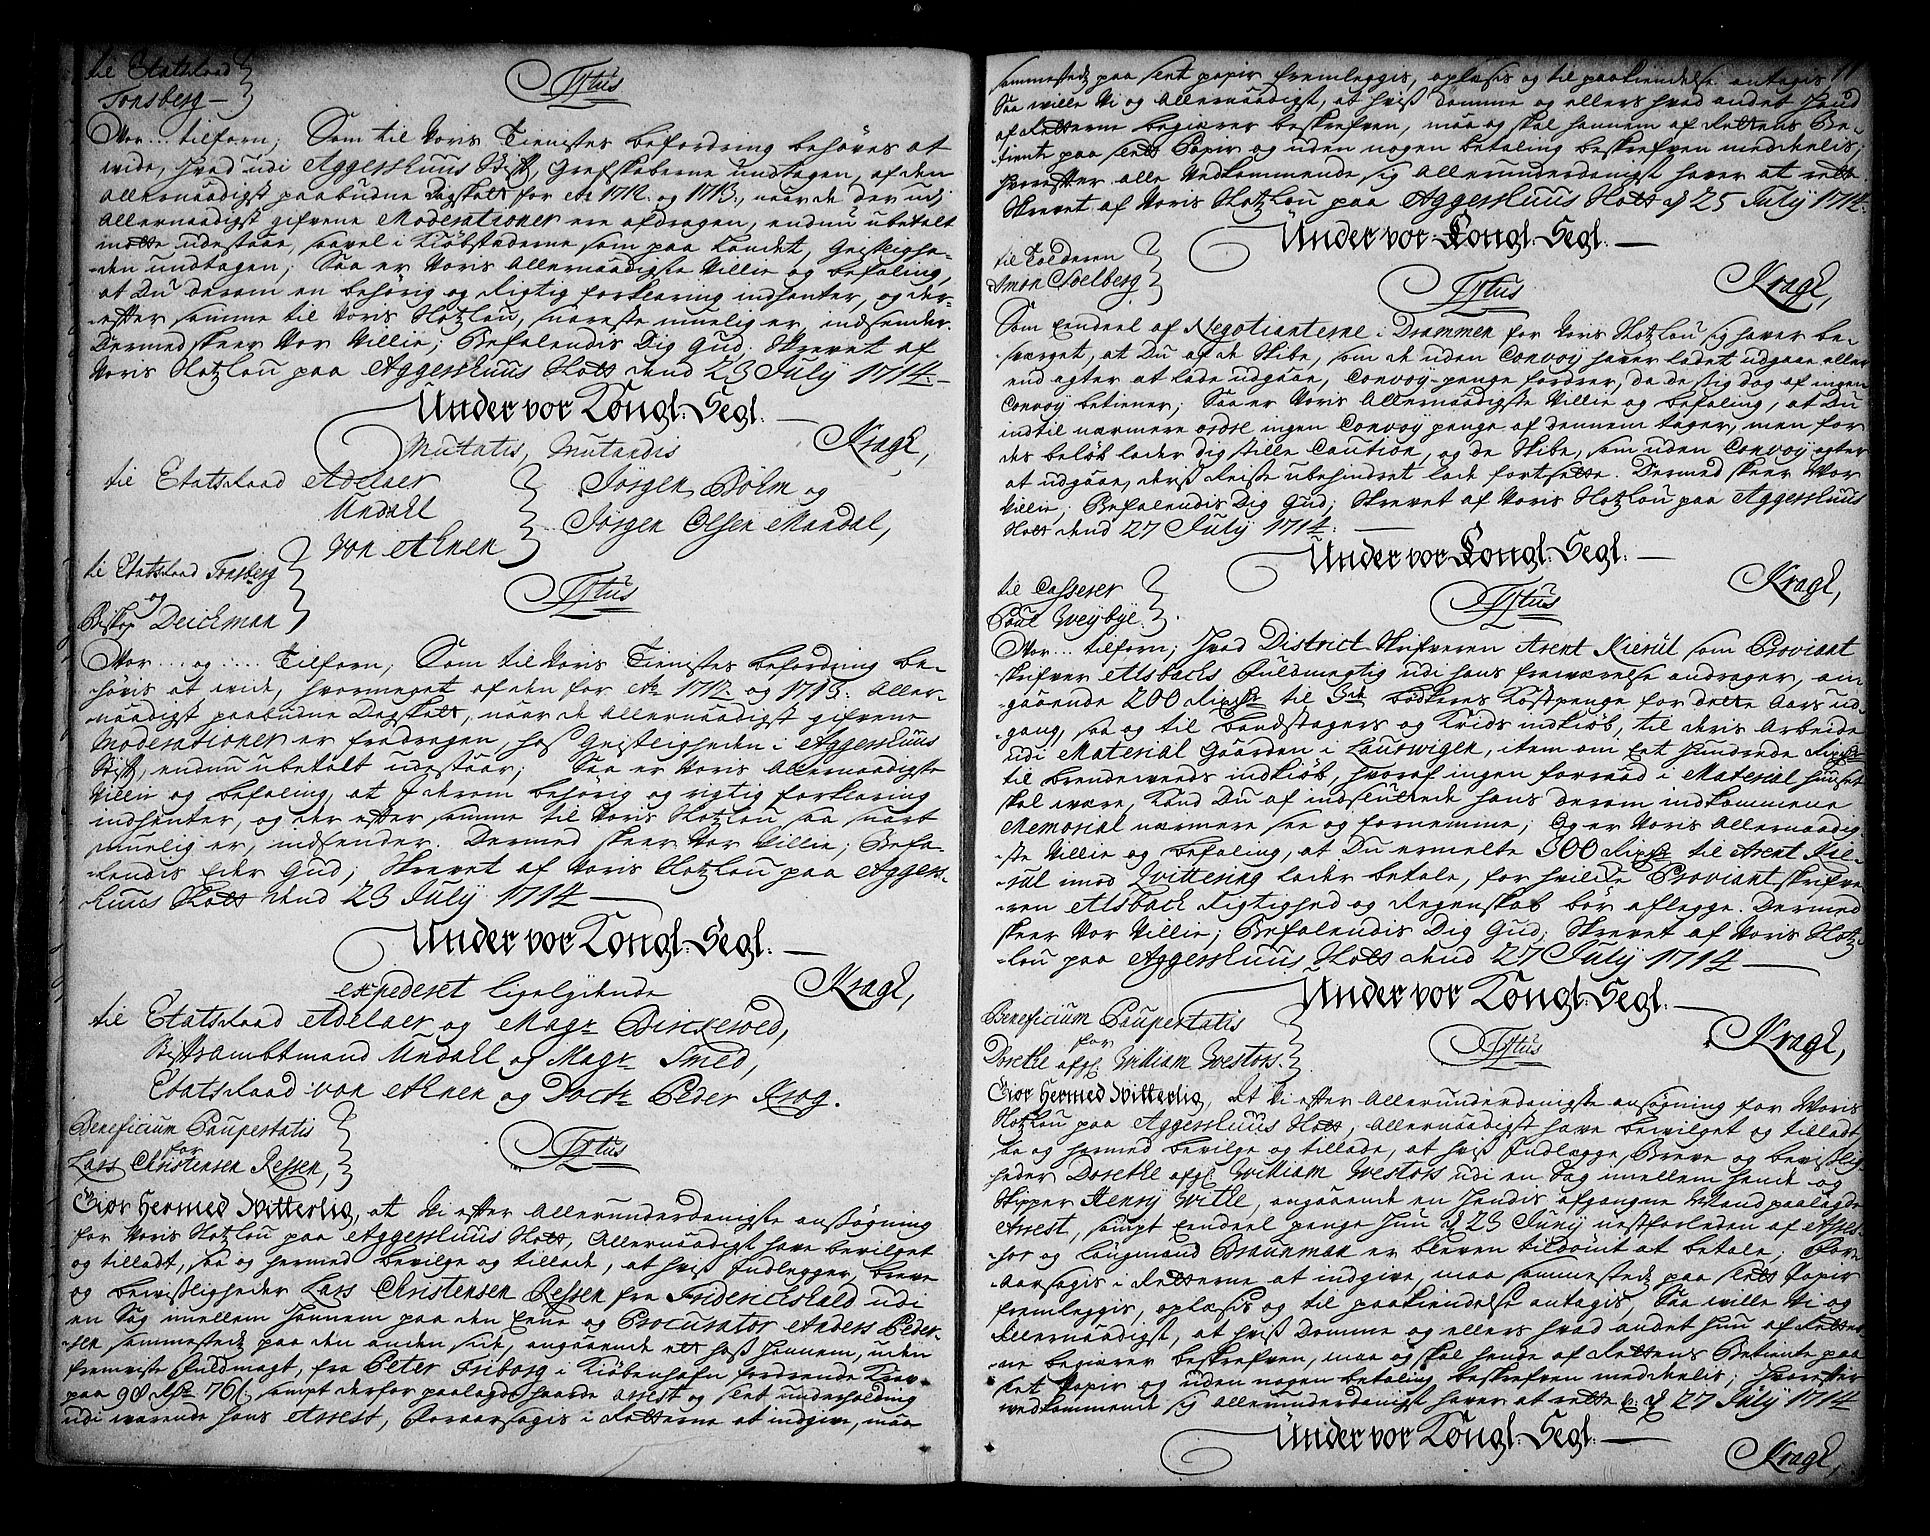 til Etatsraad
Tonsberg
Tÿtus
Vor ... tilforn; Som til Voris Tienistes befordring behøves at
wide, hvad udi Aggershuus Stift, Grefskaberne undtagen, af den
Allernaadigst paabudne Dagskatt for Ao 1712. og 1713., naar de der udj
Allernaadigst gifvene Moderationer ere afdragen, endnu ubetalt
motte udestaae, saavel i Kiøbstæderne som paa Landet, Geistlighe-
-den undtagen; Saa er Voris Allernaadigste Villie og befaling,
at Du derom en behørig og Rigtig forklaring indhenter, og der-
-efter samme til Voris Slotzlou, snareste muelig er, indsender.
Dermed skeer Vor Villie; Befalendis Dig Gud. Skrevet af
Voris Slotzlou paa Aggershuus Slott dend 23 July 1714.
Under vor Kongl: Segl.
Mutatis, Mutandis
Kragh,
til Etatsraad Adelaer
Undahl
von Ahnen
Jørgen Bølm og
Jørgen Olsen Mandal,
til Etatsraad Tonsberg
og
Biskop Deichman
Tÿtus
Vor ... og .... Tilforn; Som til Voris Tienistes befordring be-
-høvis at wide, hvormeget af den for Ao 1712. og 1713. Aller-
-naadigst paabudne Dagskatt, naar de Allernaadigst gifvene
Moderationer er fradragen, hoß Geistligheden i Aggershuus
Stift, endnu ubetalt udestaar; Saa er Voris Allernaadigste
Villie og befaling, at I derom behørig og rigtig forklaring
indhenter, og der efter samme til Voris Slotzlou saa snart
muelig er, indsender. Dermed skeer Vor Villie; Befa-
-lendis Eder Gud; Skrevet af Voris Slotzlou paa Aggers-
huus Slott dend 23 July 1714
Under vor Kongl: Segl.
expederet ligelydende
Kragh,
til Etatsraad Adelaer og Magr Birkerod,
Stiftsambtmand Undahl og Magr Smed,
Etatsraad von Ahnen og Doctr Peder Krog.
Beneficium Paupertatis
for
Lars Christensen Ressen,
Tÿtus
Giør Hermed Vitterlig, at Vi efter Allerunderdanigste anssøgning
for Voris Slotzlou paa Aggershuus Slott, Allernaadigst have bevilget
og tilladt, saa og hermed bevilge og tillade, at hviß Indlegger, breve
og bewisligheder Lars Christensen Ressen fra Friderichshald udi
en Sag imellem hannem paa den Eene og Procurator Anders Peder-
-sen sammestedz paa den anden side, angaaende det hoß hannem, uden
fremviste Fuldmagt, fra Peter Friborg i Kiøbenhafn fordrende Krav
paa 98 Rdr 76 s. sampt derfor paalagde haarde arrest og slet underholding
udi warende hans Arrest, foraarsagis i Retterne at indgive, maa
11
sammestedz paa slet papir fremleggis, oplæses og til paakiendelse antagis
Saa wille Vi og Allernaadigst, at hviß Domme og ellers hvad andet hand
af Retterne begiærer beskrefven, maa og skal hannem af Rettens Be-
tiente paa slett Papir og uden nogen betaling beskrefven meddelis;
hvorefter alle Vedkommende sig Allerunderdanigst haver at rette.
Skrevet af Voris Slotzlou paa Aggershuus Slott d 25 July 1714.
Under vor Kongl: Segl.
Kragh,
til Tolderen
Simon Svelberg
Tÿtus
Som Eendeel af Negotianterne i Drammen for Voris Slotzlou sig haver be-
-sværget, at Du af de Skibe, som de uden Convoy haver ladet udgaae eller
end agter at lade udgaae, Convoy-penge fordrer, da de sig dog af ingen
Convoy betiener; Saa er Voris Allernaadigste Villie og befaling, at Du
indtil nærmere ordre ingen Convoy penge af dennem tager, men for
des beløb lader dig stille Caution, og de Skibe, som uden Convoy agter
at udgaae, derß Reise ubehindret lade fortsette. Dermed skeer Vor
Villie; Befalendis Dig Gud; Skrevet af Voris Slotzlou paa Aggershuus
Slott dend 27 July 1714.
Under vor Kongl: Segl.
Kragh,
til Casserer
Poul Weybye.
Tÿtus
Vor ... tilforn; Hvad District Skrifveren Arent Kierul som Proviant
skrifver Alsbachs Fuldmegtig udi hans fraværelse andrager, an-
-gaaende 200 Rixdr til bødkeres Kostpenge for dette Aars ud-
gang, saa og til baandstagers og Krids indkiøb, til deris Arbeide
udi Material Gaarden i Laurwigen, item om Eet hundrede Rixdr
til brendeweeds indkiøb, hvoraf ingen forraad i Material huuset
skal være, kand Du af indsluttede hans derom indkommene
Memorial nærmere see og fornemme; Og er Voris Allernaadig-
-ste Villie og befaling, at Du ermelte 300 Rixdr til Arent Kie-
-rul imod Qvittering lader betale, for hvilke Proviantskrifve-
-ren Alsbach Rigtighed og Regenskab bør aflegge. Dermed
skeer Vor Villie; Befalendis Dig Gud; Skrevet af Voris Slotz-
-lou paa Aggershuus Slott dend 27 July 1714
Under vor Kongl: Segl.
Kragh,
Beneficium Paupertatis
for
Dorethe afgl. William Westors.
Tÿtus
Giør Hermed Vitterlig, At Vi efter Allerunderdanigste ansøgning for Voris
Slotzlou paa Aggershuus Slott, Allernaadigst have bevilget og tilladt,
saa og hermed bevilge og tillade, at hviß Indlegge, Breve og bevißlig-
heder Dorethe afgl. William Westors udi en Sag imellem hende og
Skipper Henry Witle, angaaende en hendis afgangne Mand paalagde
Arrest, sampt Eendeel penge hun d 23 Juny nestforleden af Asses-
sor og Laugmand Braunman er bleven tildømt at betale, foraar-
-aarsagis i Retterne at indgive, maa sammestedz paa slett Papir
fremleggis, oplæsis og til paakiendelse antagis, Saa wille Vi og
Allernaadigst, at hviß Domme og ellers hvad andet hun af Retter-
-ne begiærer beskrefven, maa og skal hende af Rettens Betiente paa
slet Papir og uden nogen betaling beskrefven meddelis; hvorefter
vedkommende sig allerunderdanigst haver at rette p. d 27 July 1714
Under vor Kongl: Segl.
Kragh,